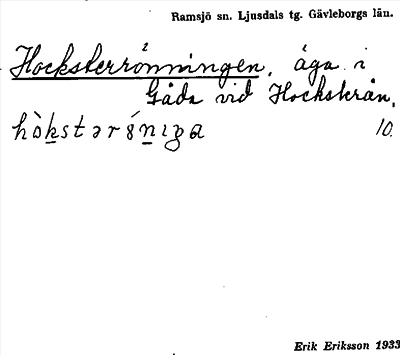 Ramsjö sn. Ljusdals tg. Gävleborgs län.
Hocksterrönningen, äga i
Gåda vid Hockstrån,
10.
Erik Eriksson 1933